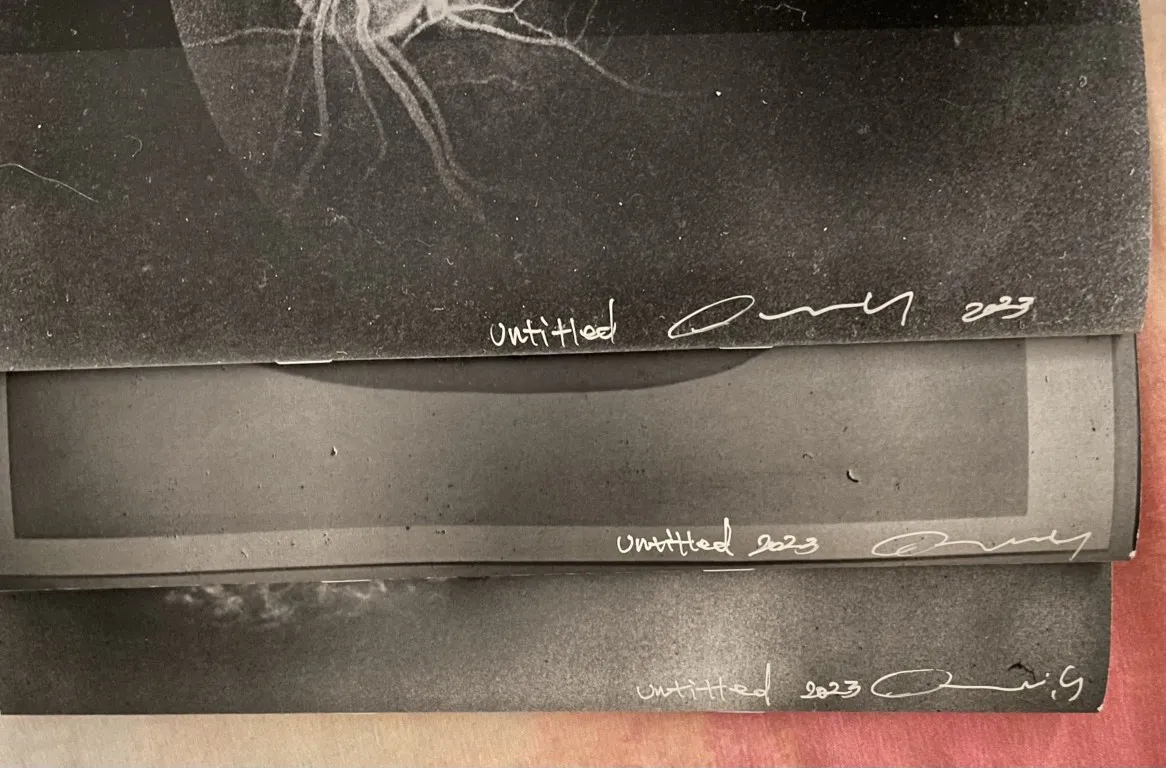 untitled 2023
untitled 2023
untitled 2023